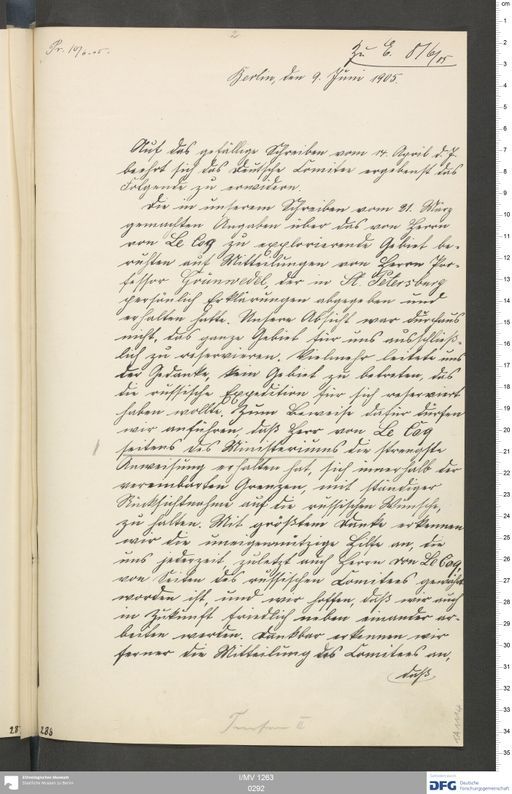 2
Pr. 10/6.05.
Zu E. 816/05
Berlin, den 9. Juni 1905.
Auf das gefällige Schreiben vom 14. April d. J.
beehrt sich das Deutsche Comitee ergebenst das
Folgende zu erwidern.
Die in unserem Schreiben vom 21. März
gemachten Angaben über das von Herrn
von Le Coq zu explorierende Gebiet be-
ruhten auf Mitteilungen von Herrn Pro-
fessor Grünwedel, der in St. Petersburg
persönlich Erklärungen abgegeben und
erhalten hatte. Unsere Absicht war durchaus
nicht, das ganze Gebiet für uns ausschließ-
lich zu reservieren. Vielmehr leitete uns
der Gedanke, kein Gebiet zu betreten, das
die russische Expedition für sich reserviert
haben wollte. Zum Beweise dafür dürfen
wir anführen daß Herr von Le Coq
seitens des Ministeriums die strengste
Anweisung erhalten hat, sich innerhalb der
vereinbarten Grenzen, mit ständiger
Rücksichtnahme auf die russischen Wünsche,
zu halten. Mit größtem Danke erkennen
wir die uneigennützige Hilfe an, die
uns jederzeit, zuletzt auch Herrn von Le Coq,
von Seiten des russischen Comitees gewährt
worden ist, und wir hoffen, daß wir auch
in Zukunft friedlich neben einander ar-
beiten werden. Dankbar erkennen wir
ferner die Mitteilung des Comitees an,
daß
Turfan II
286
Ethnologisches Museum
Staatliche Museen zu Berlin
I/MV 1263
0292
DFG
Deutsche
Forschungsgemeinschaft
cm
1
2
3
4
5
6
7
8
9
10
11
12
13
14
15
16
17
18
19
20
21
22
23
24
25
26
27
28
29
30
31
32
33
34
35